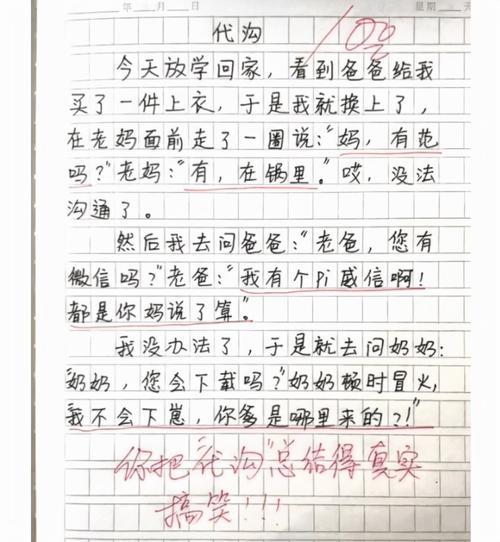 年 月 日 星期 天
代沟
100
今天放学回家，看到爸爸给我
买了一件上衣，于是我就换上了，
在老妈面前走了一圈说："妈，有范
吗？"老妈："有，在锅里。"哎，没法
沟通了。
然后我去问爸爸："老爸，您有
微信吗？"老爸："我有个Pi威信啊！
都是你妈说了算。"
我没办法了，于是就去问奶奶：
"奶奶，您会下载吗？"奶奶顿时冒火，
"我不会下崽，你爹是哪里来的？！"
你把"代沟"总结得真实
搞笑！！！